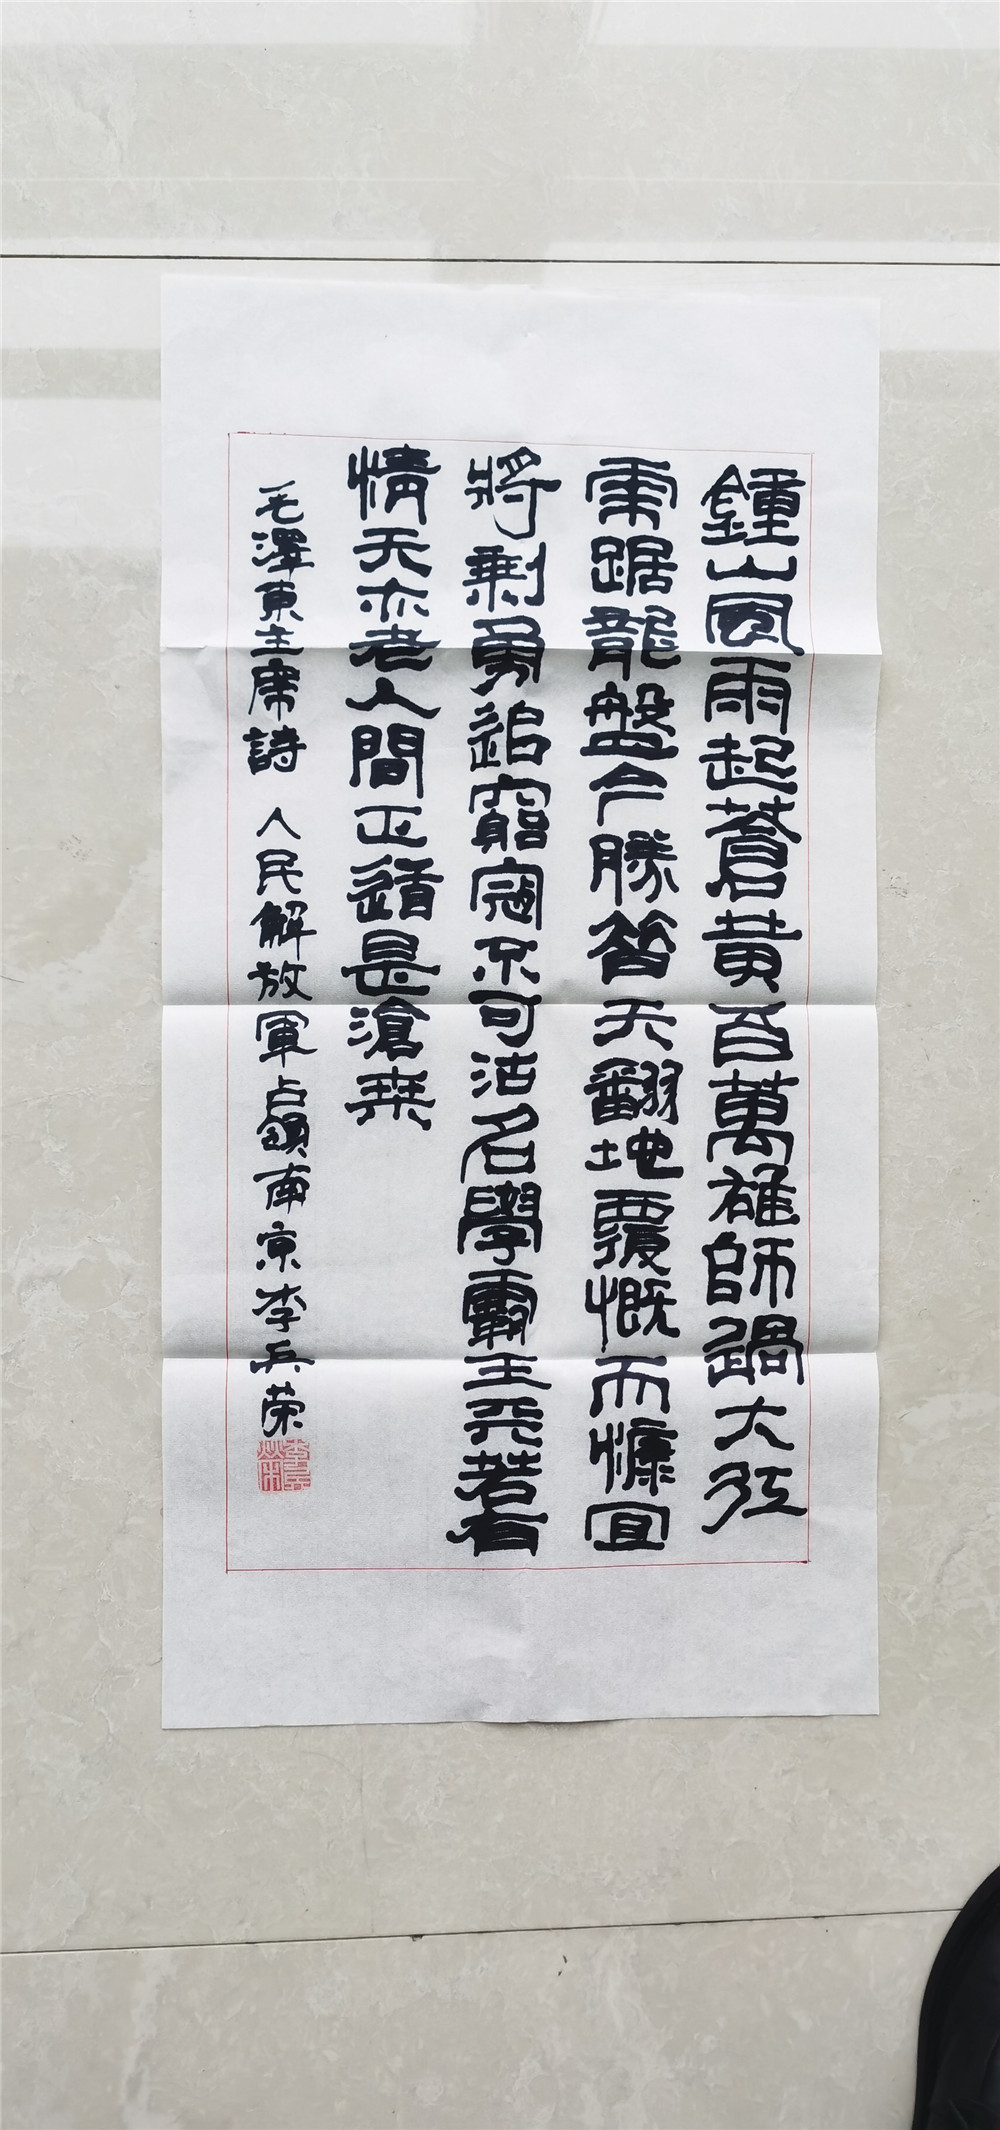 鍾山風雨起蒼黃百萬雄師過大江
虎踞龍盤今勝昔天翻地覆慨而慷宜
將剩勇追窮寇不可沽名學霸王天若有
情天亦老人間正道是滄桒
毛澤東主席詩 人民解放軍占領南京李兵荣
李兵荣